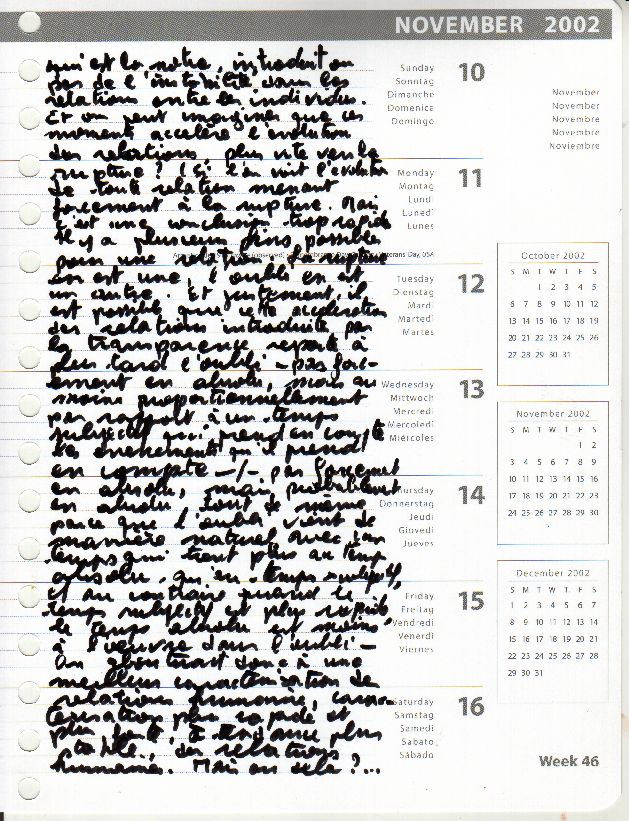 NOVEMBER 2002
qui est la notre, introduit un
peu de l'instabilité dans les
relations entre les individus.
Et on peut imaginer que ces
moments accelère l'évolution
des relations plus vite vers la
rupture ? (si l'on voit l'évolution
de toute relation menant
forcement à la rupture. Mais
c'est une conclusion trop rapide
Il y a plusieurs fins possibles
pour une relation, la rupture
en est une, l'oubli en est
un autre. Et justement, il
est possible que cette acceleration
des relations introduite par
la transparence reporte à
plus tard l'oubli - pas forc-
ement en absolu, mais au
moins proportionnellement
par rapport à un temps
subjectif qui prend en compte
les évenements qu'il prend
en compte -/- pas forcement
en absolu, mais probablement
en absolu tout de même
parce que l'oubli vient de
manière naturel avec un
temps qui tient plus au temps
absolu, qu'en temps subjectif,
et au contraire quand le
temps subjectif est plus rapide
le temps absolu est moins
à l'oeuvre dans l'oubli -
On aboutirait donc à une
meilleur caractérisation de
relations humaines, carac-
térisation plus rapide et
plus forte, à tendance plus
stable, des relations
humaines. Mais au delà ?...
Sunday 10
Sonntag
Dimanche
Domenica
Domingo
November
November
Novembre
Novembre
Noviembre
Monday 11
Montag
Lundi
Lunedì
Lunes
Veterans Day, USA
Tuesday 12
Dienstag
Mardi
Martedì
Martes
Wednesday 13
Mittwoch
Mercredi
Mercoledì
Miércoles
Thursday 14
Donnerstag
Jeudi
Giovedì
Jueves
Friday 15
Freitag
Vendredi
Venerdì
Viernes
Saturday 16
Samstag
Samedi
Sabato
Sábado
October 2002
S M T W T F S
1 2 3 4 5
6 7 8 9 10 11 12
13 14 15 16 17 18 19
20 21 22 23 24 25 26
27 28 29 30 31
November 2002
S M T W T F S
1 2
3 4 5 6 7 8 9
10 11 12 13 14 15 16
17 18 19 20 21 22 23
24 25 26 27 28 29 30
December 2002
S M T W T F S
1 2 3 4 5 6 7
8 9 10 11 12 13 14
15 16 17 18 19 20 21
22 23 24 25 26 27 28
29 30 31
Week 46